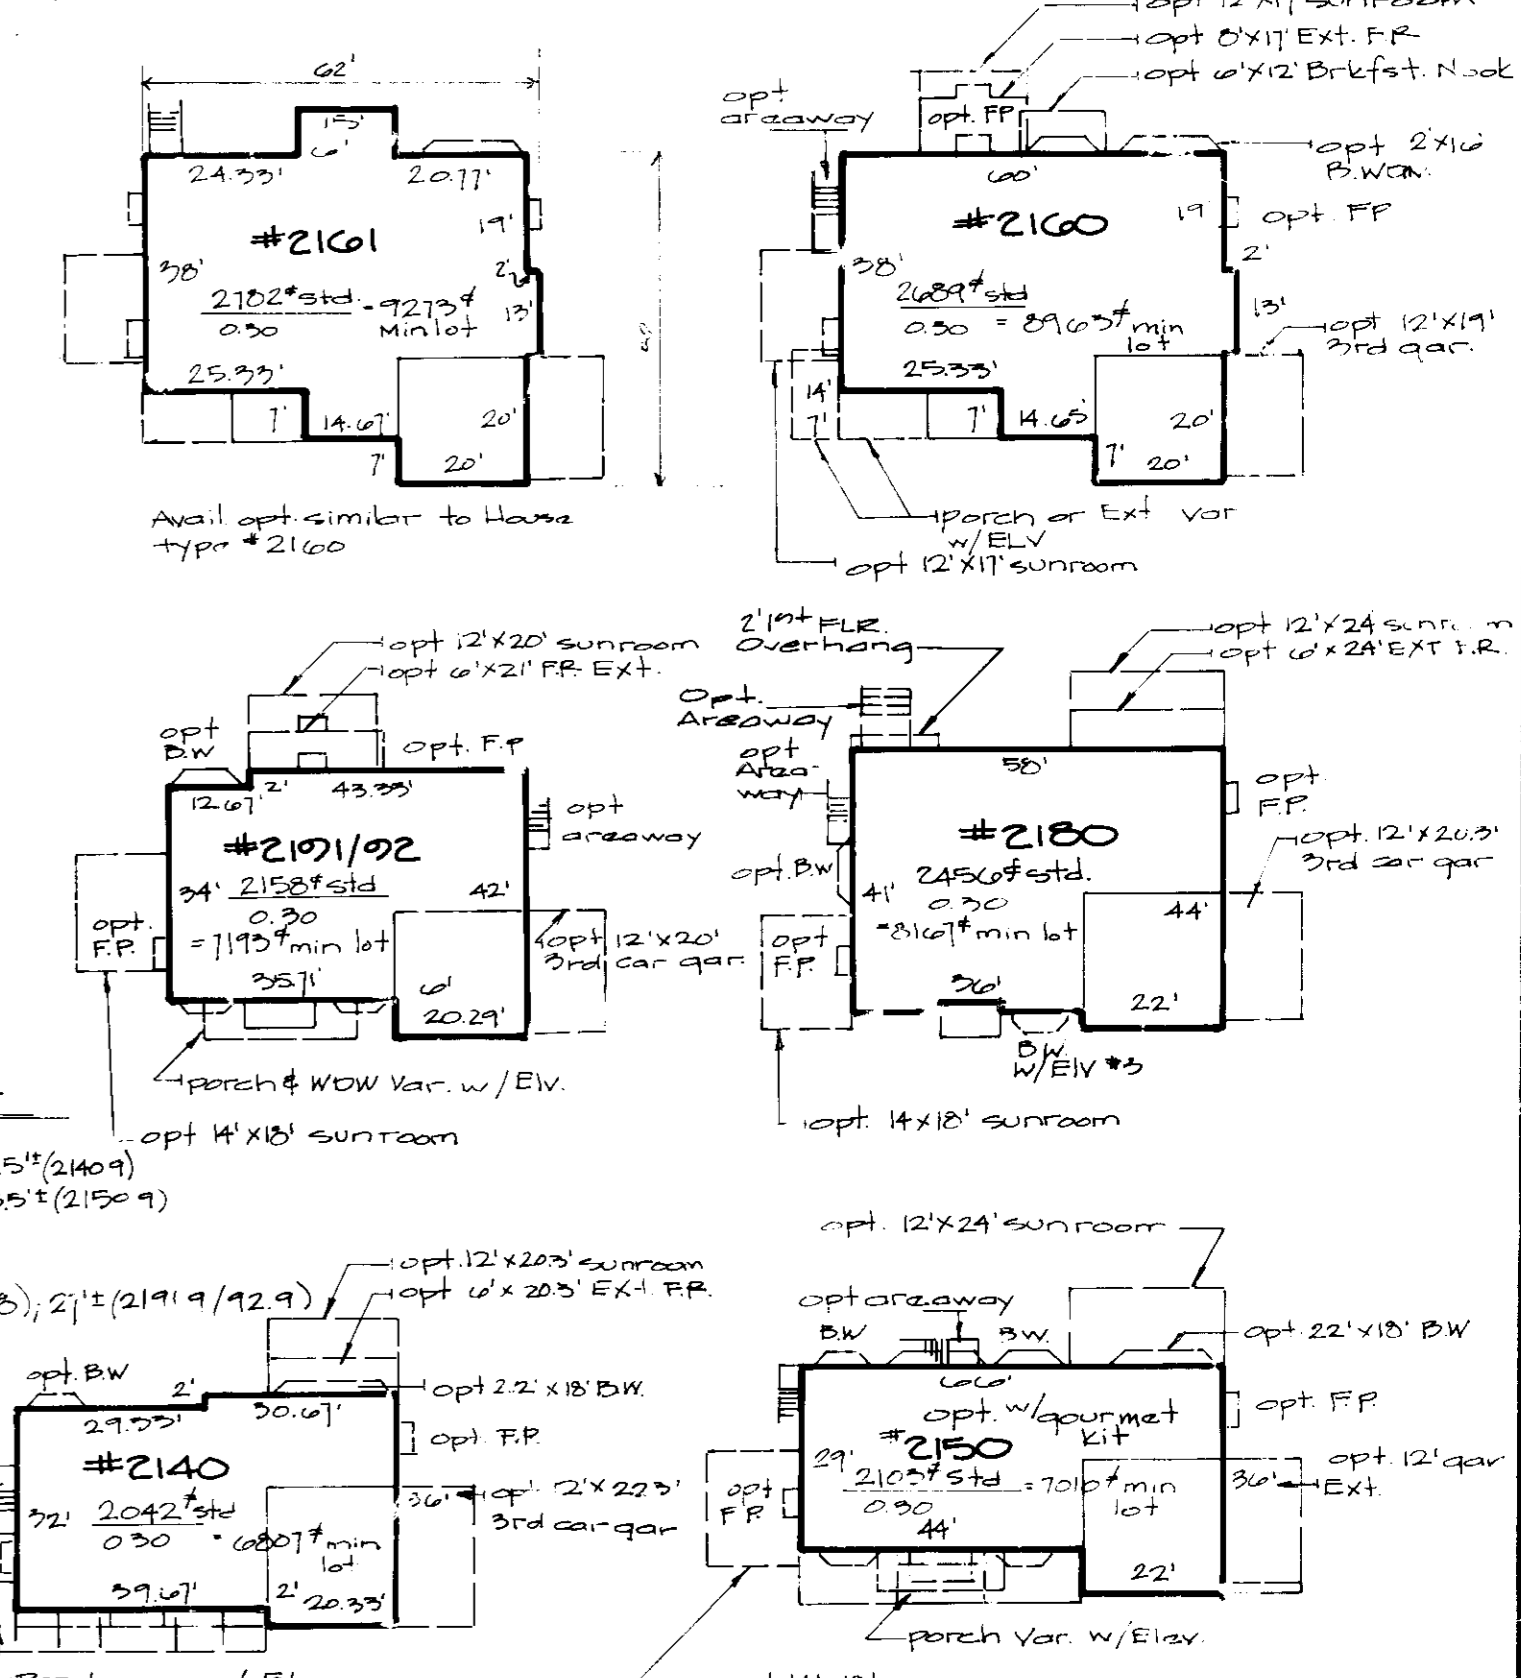 opt 12'X17' sunroom
opt 8'X17' Ext. F.R
opt 6'X12' Brkfst. Nook
62'
15'
6'
24.33'
20.77'
19'
#2161
38'
2'
2782# std.
0.30
= 9273#
Min lot
13'
25.33'
7'
14.67'
20'
7'
20'
Avail opt. similar to House
type #2160
opt
areaway
opt. FP
opt 2'X16'
B.WDW.
60'
#2160
19'
opt. FP
38'
2'
2689# std
0.30
= 8963# min
lot
13'
opt 12'X19'
3rd gar.
25.33'
14'
7'
7'
14.65'
20'
7'
20'
porch or Ext Var
w/ELV
opt 12'X17' sunroom
opt 12'X20' sunroom
opt 6'X21' F.R. Ext.
opt
B.W
opt. F.P
12.67'
2'
43.33'
opt
areaway
#2191/92
34'
2158# std
0.30
= 7193# min lot
42'
opt.
F.P.
35.71'
6'
20.29'
opt 12'X20'
3rd car gar.
porch & WDW Var. w/Elv.
opt 14'X18' sunroom
2' 1st FLR.
Overhang
opt 12'X24' sunroom
opt 6'X24' EXT F.R.
Opt.
Areaway
opt
Area-
way
58'
opt
F.P.
#2180
opt. 12'X20.3'
3rd car gar
opt. B.W
2456# std.
0.30
= 8167# min lot
41'
44'
opt
F.P.
36'
22'
B.W.
W/Elv #3
opt. 14X18' sunroom
.5'± (2140 9)
5.5'± (2150 9)
8); 27'± (2191 9/92.9)
opt. 12'X20.3' sunroom
opt 6'X20.3' Ext. F.R.
opt. B.W
2'
opt 2.2'X18' B.W.
29.33'
30.67'
opt. F.P.
#2140
32'
2042# std
0.30
= 6807# min
lot
36'
opt. 12'X22.3'
3rd car gar
39.67'
2'
20.33'
opt. 12'X24' sunroom
opt areaway
B.W
B.W.
opt. 22'X18' B.W
66'
opt. w/gourmet
kit
opt. F.P.
#2150
29'
2103# std
0.30
= 7010# min
lot
36'
opt. 12' gar
Ext.
opt
F.P.
44'
22'
porch Var. w/Elev.